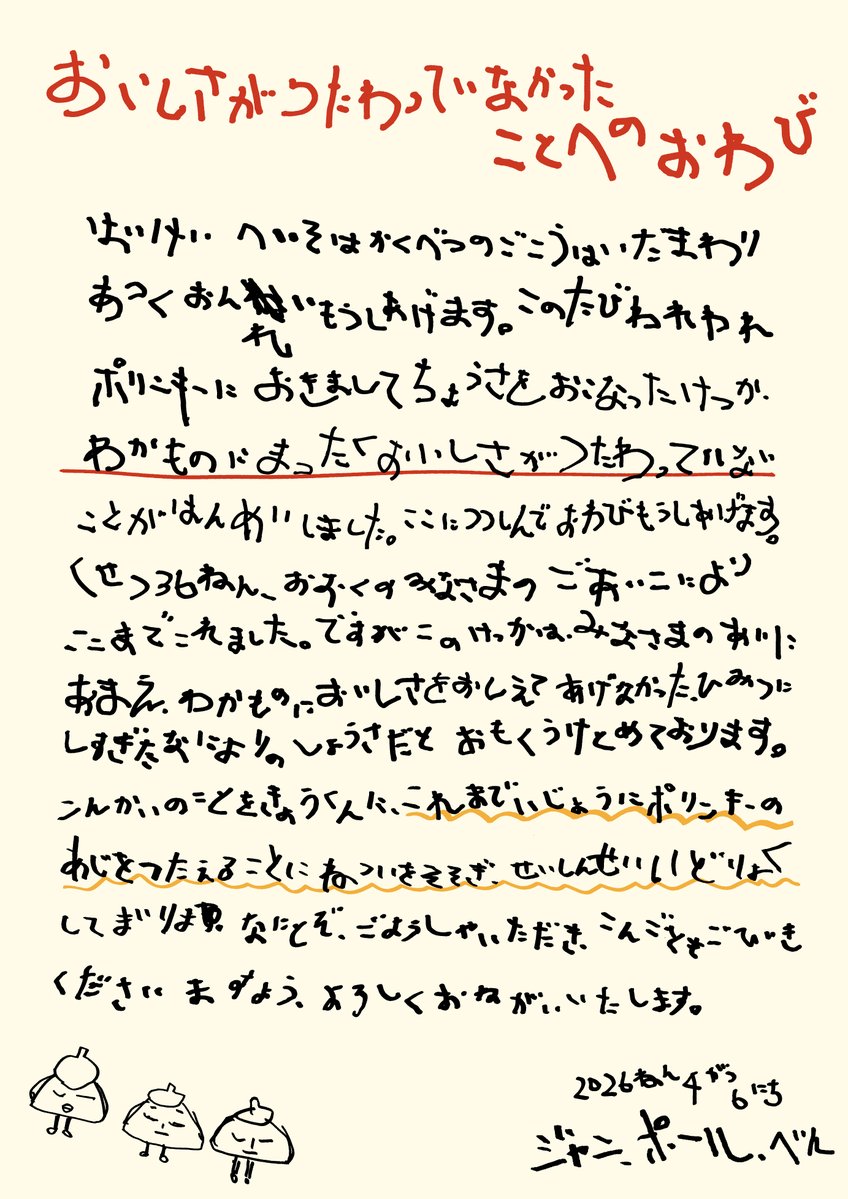 おいしさがつたわっていなかった
ことへのおわび
はいけい へいそはかくべつのごこうはいたまわり
あつくおんれいもうしあげます。このたびわれわれ
ポリンキーに おきましてちょうさをおこなったけっか、
わかものにまったくおいしさがつたわっていない
ことがはんめいしました。ここにつつしんでおわびもうしあげます。
くせつ36ねん、おおくのみなさまの ごあいこにより
ここまでこれました。ですがこのけっかは、みなさまのあいに
あまえ、わかものにおいしさをおしえてあげなかった、ひみつに
しすぎたなによりのしょうさだと おもくうけとめております。
こんかいのことをきょうくんに、これまでいじょうにポリンキーの
あじをつたえることにねついをそそぎ、せいしんせいいどりょく
してまいります。なにとぞ、ごようしゃいただき、こんごともごひいき
くださいますよう、よろしくおねがいいたします。
2026ねん4がつ6にち
ジャン、ポール、べん